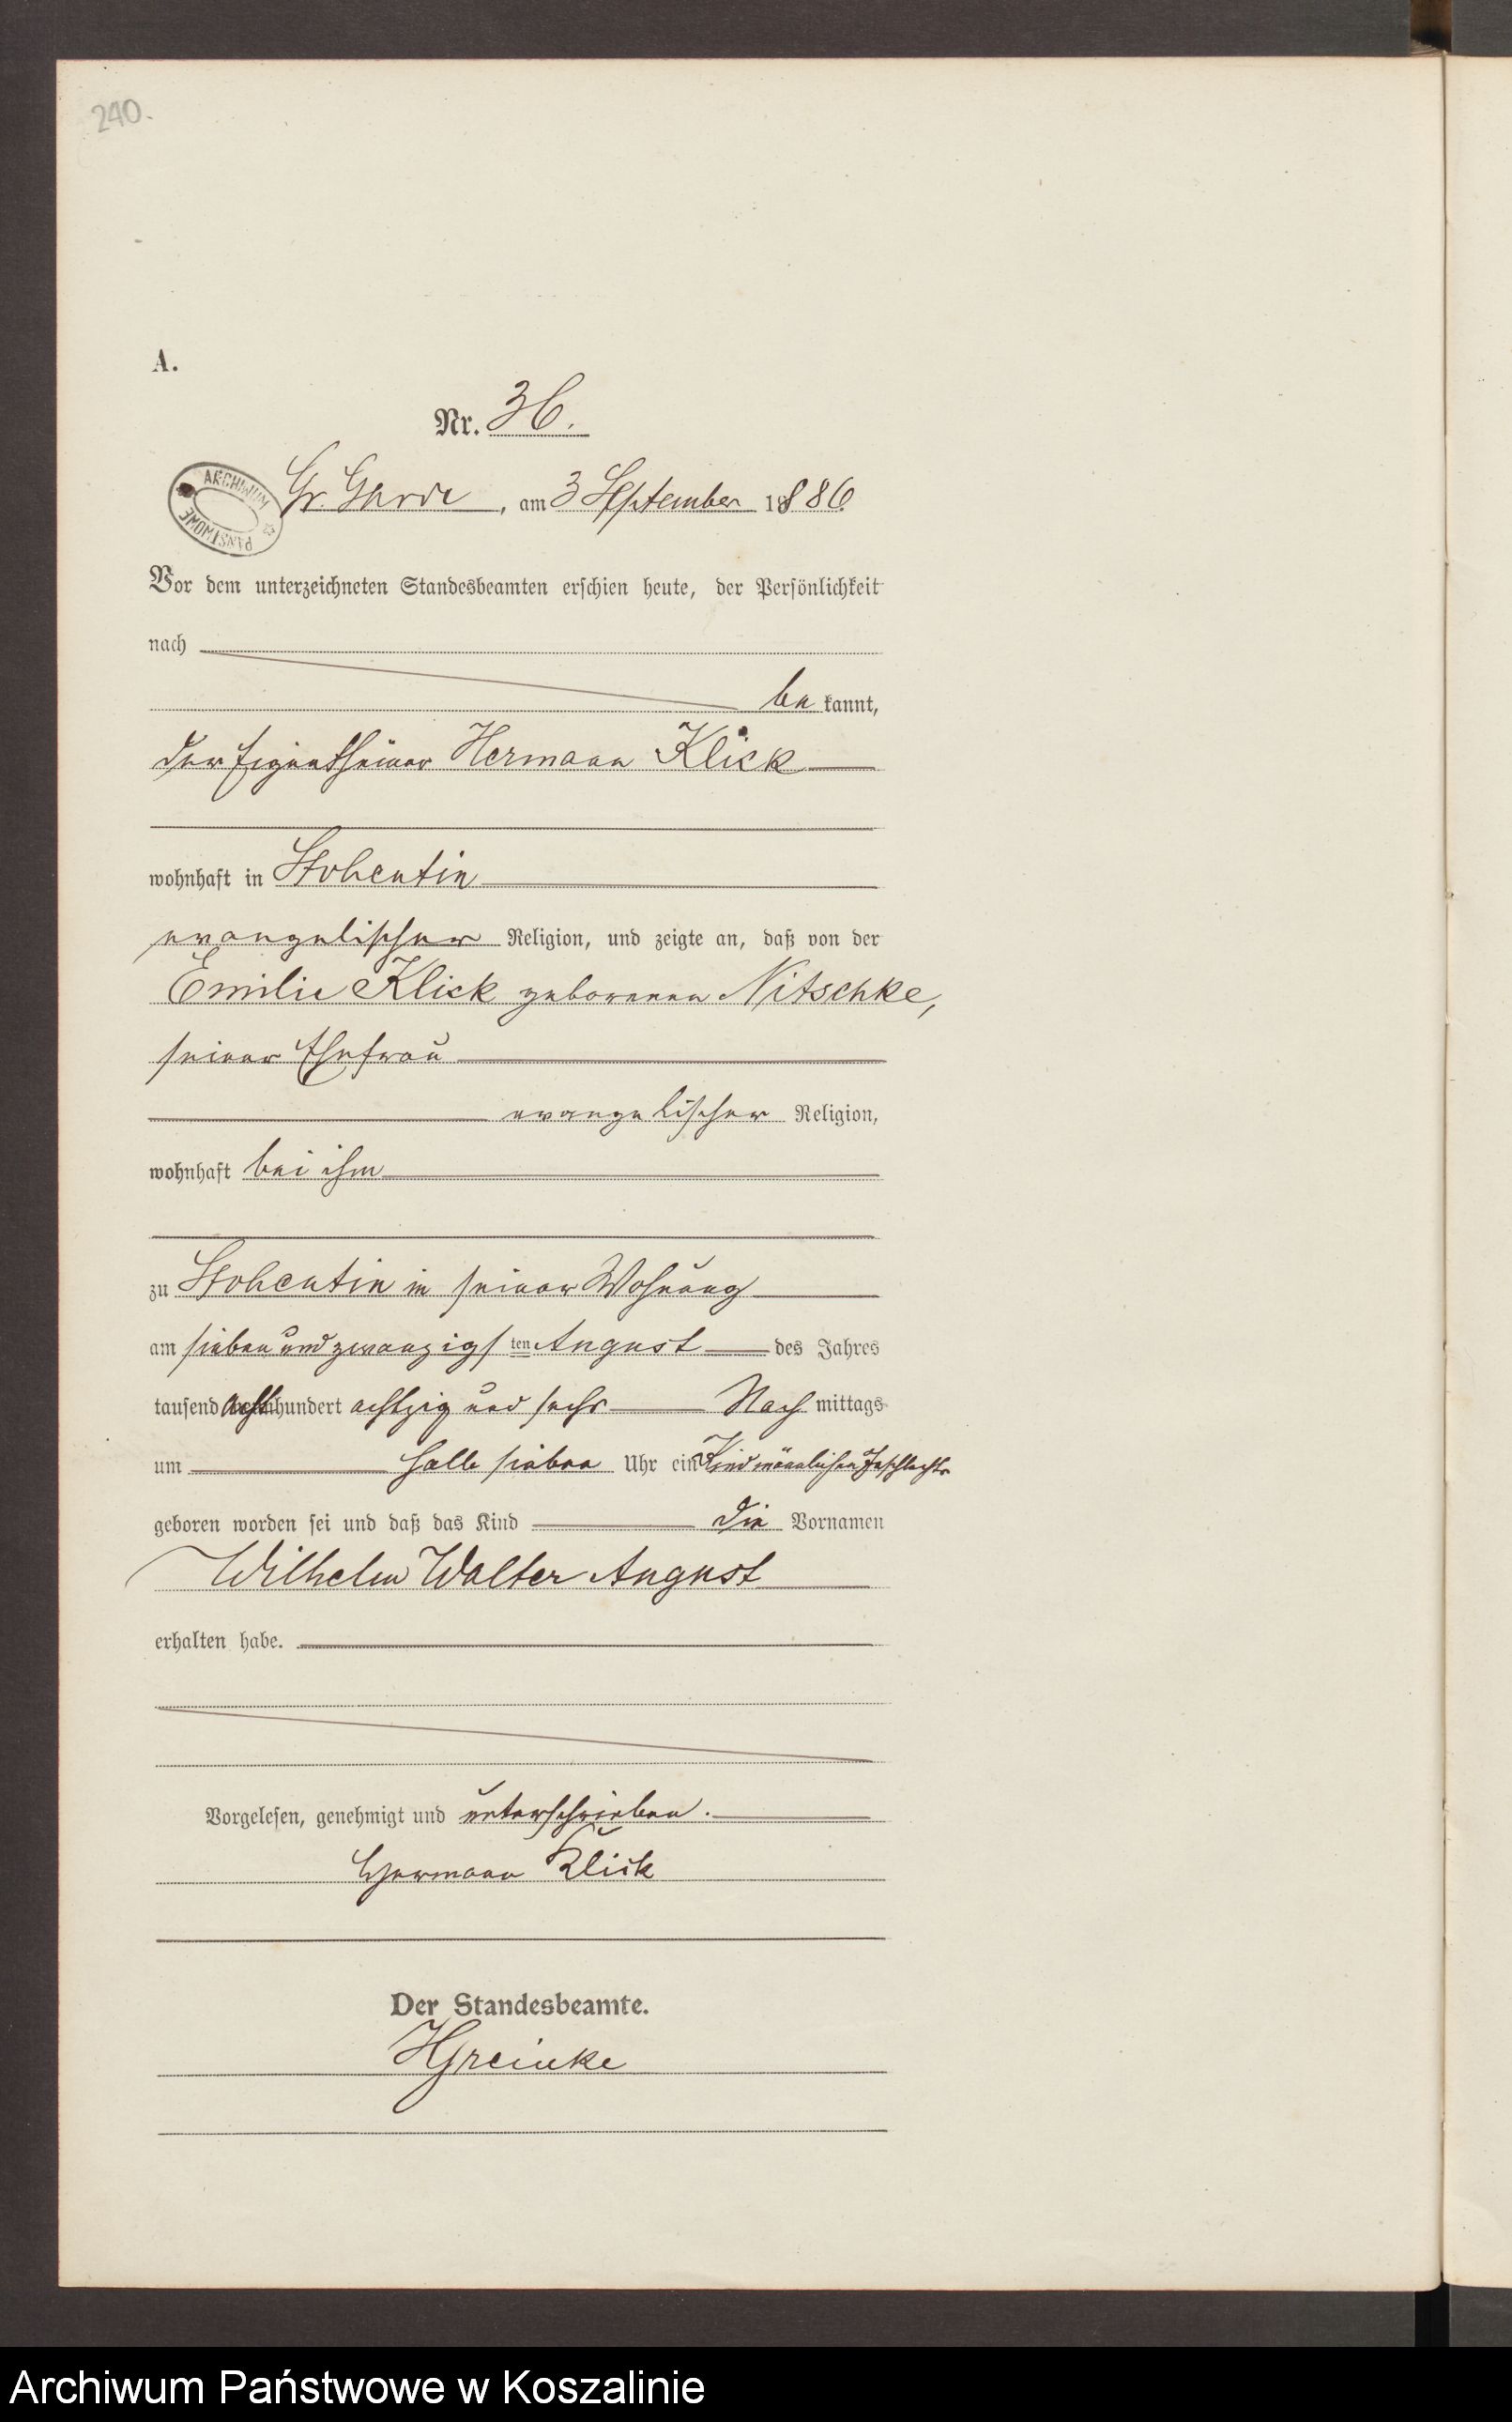 240.
A.
Nr. 36.
ARCHIWUM PAŃSTWOWE
Gr. Garde, am 3 September 1886
Vor dem unterzeichneten Standesbeamten erschien heute, der Persönlichkeit
nach
be kannt,
der Eigenthümer Hermann Klick
wohnhaft in Stohentin
evangelischer Religion, und zeigte an, daß von der
Emilie Klick geborenen Nitschke,
seiner Ehefrau
evangelischer Religion,
wohnhaft bei ihm
zu Stohentin in seiner Wohnung
am sieben und zwanzigsten August des Jahres
tausend acht hundert achtzig und sechs Nach mittags
um halb sieben Uhr ein Kind männlichen Geschlechts
geboren worden sei und daß das Kind die Vornamen
Wilhelm Walter August
erhalten habe.
Vorgelesen, genehmigt und unterschrieben.
Hermann Klick
Der Standesbeamte.
HGreinke
Archiwum Państwowe w Koszalinie